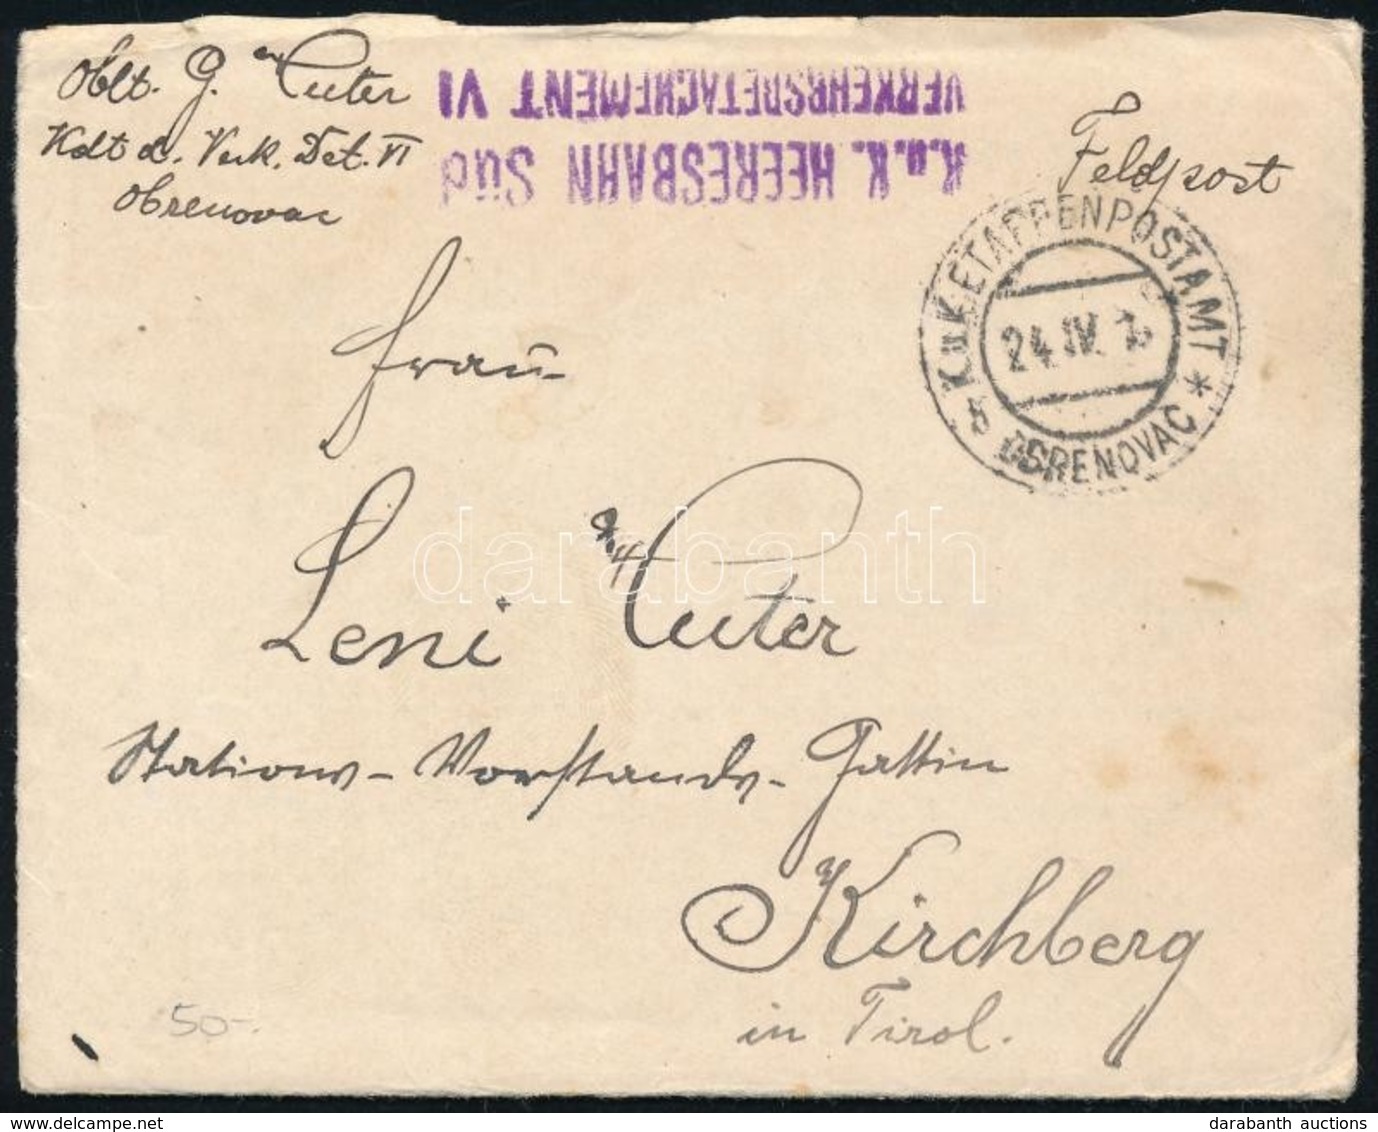 Oblt. G. Reuter
Kdt d. Verk. Det. VI
Obrenovac
K.u.K. HEERESBAHN Süd
VERKEHRSDETACHEMENT VI
Feldpost
K.u.K. ETAPPENPOSTAMT
24. IV.
* OBRENOVAC *
Frau
Leni Reuter
Stations-Vorstands-Gattin
Kirchberg
in Tirol.
50-.
darabanth
darabanth auctions